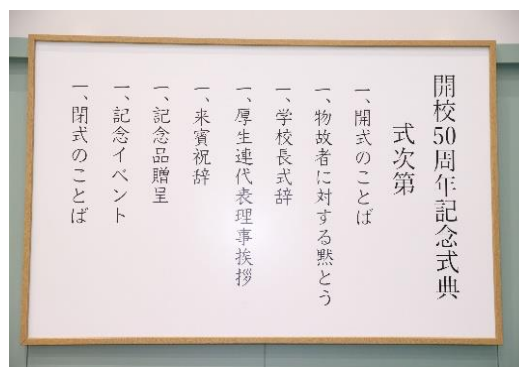 開校50周年記念式典
式次第
一、開式のことば
一、物故者に対する黙とう
一、学校長式辞
一、厚生連代表理事挨拶
一、来賓祝辞
一、記念品贈呈
一、記念イベント
一、閉式のことば